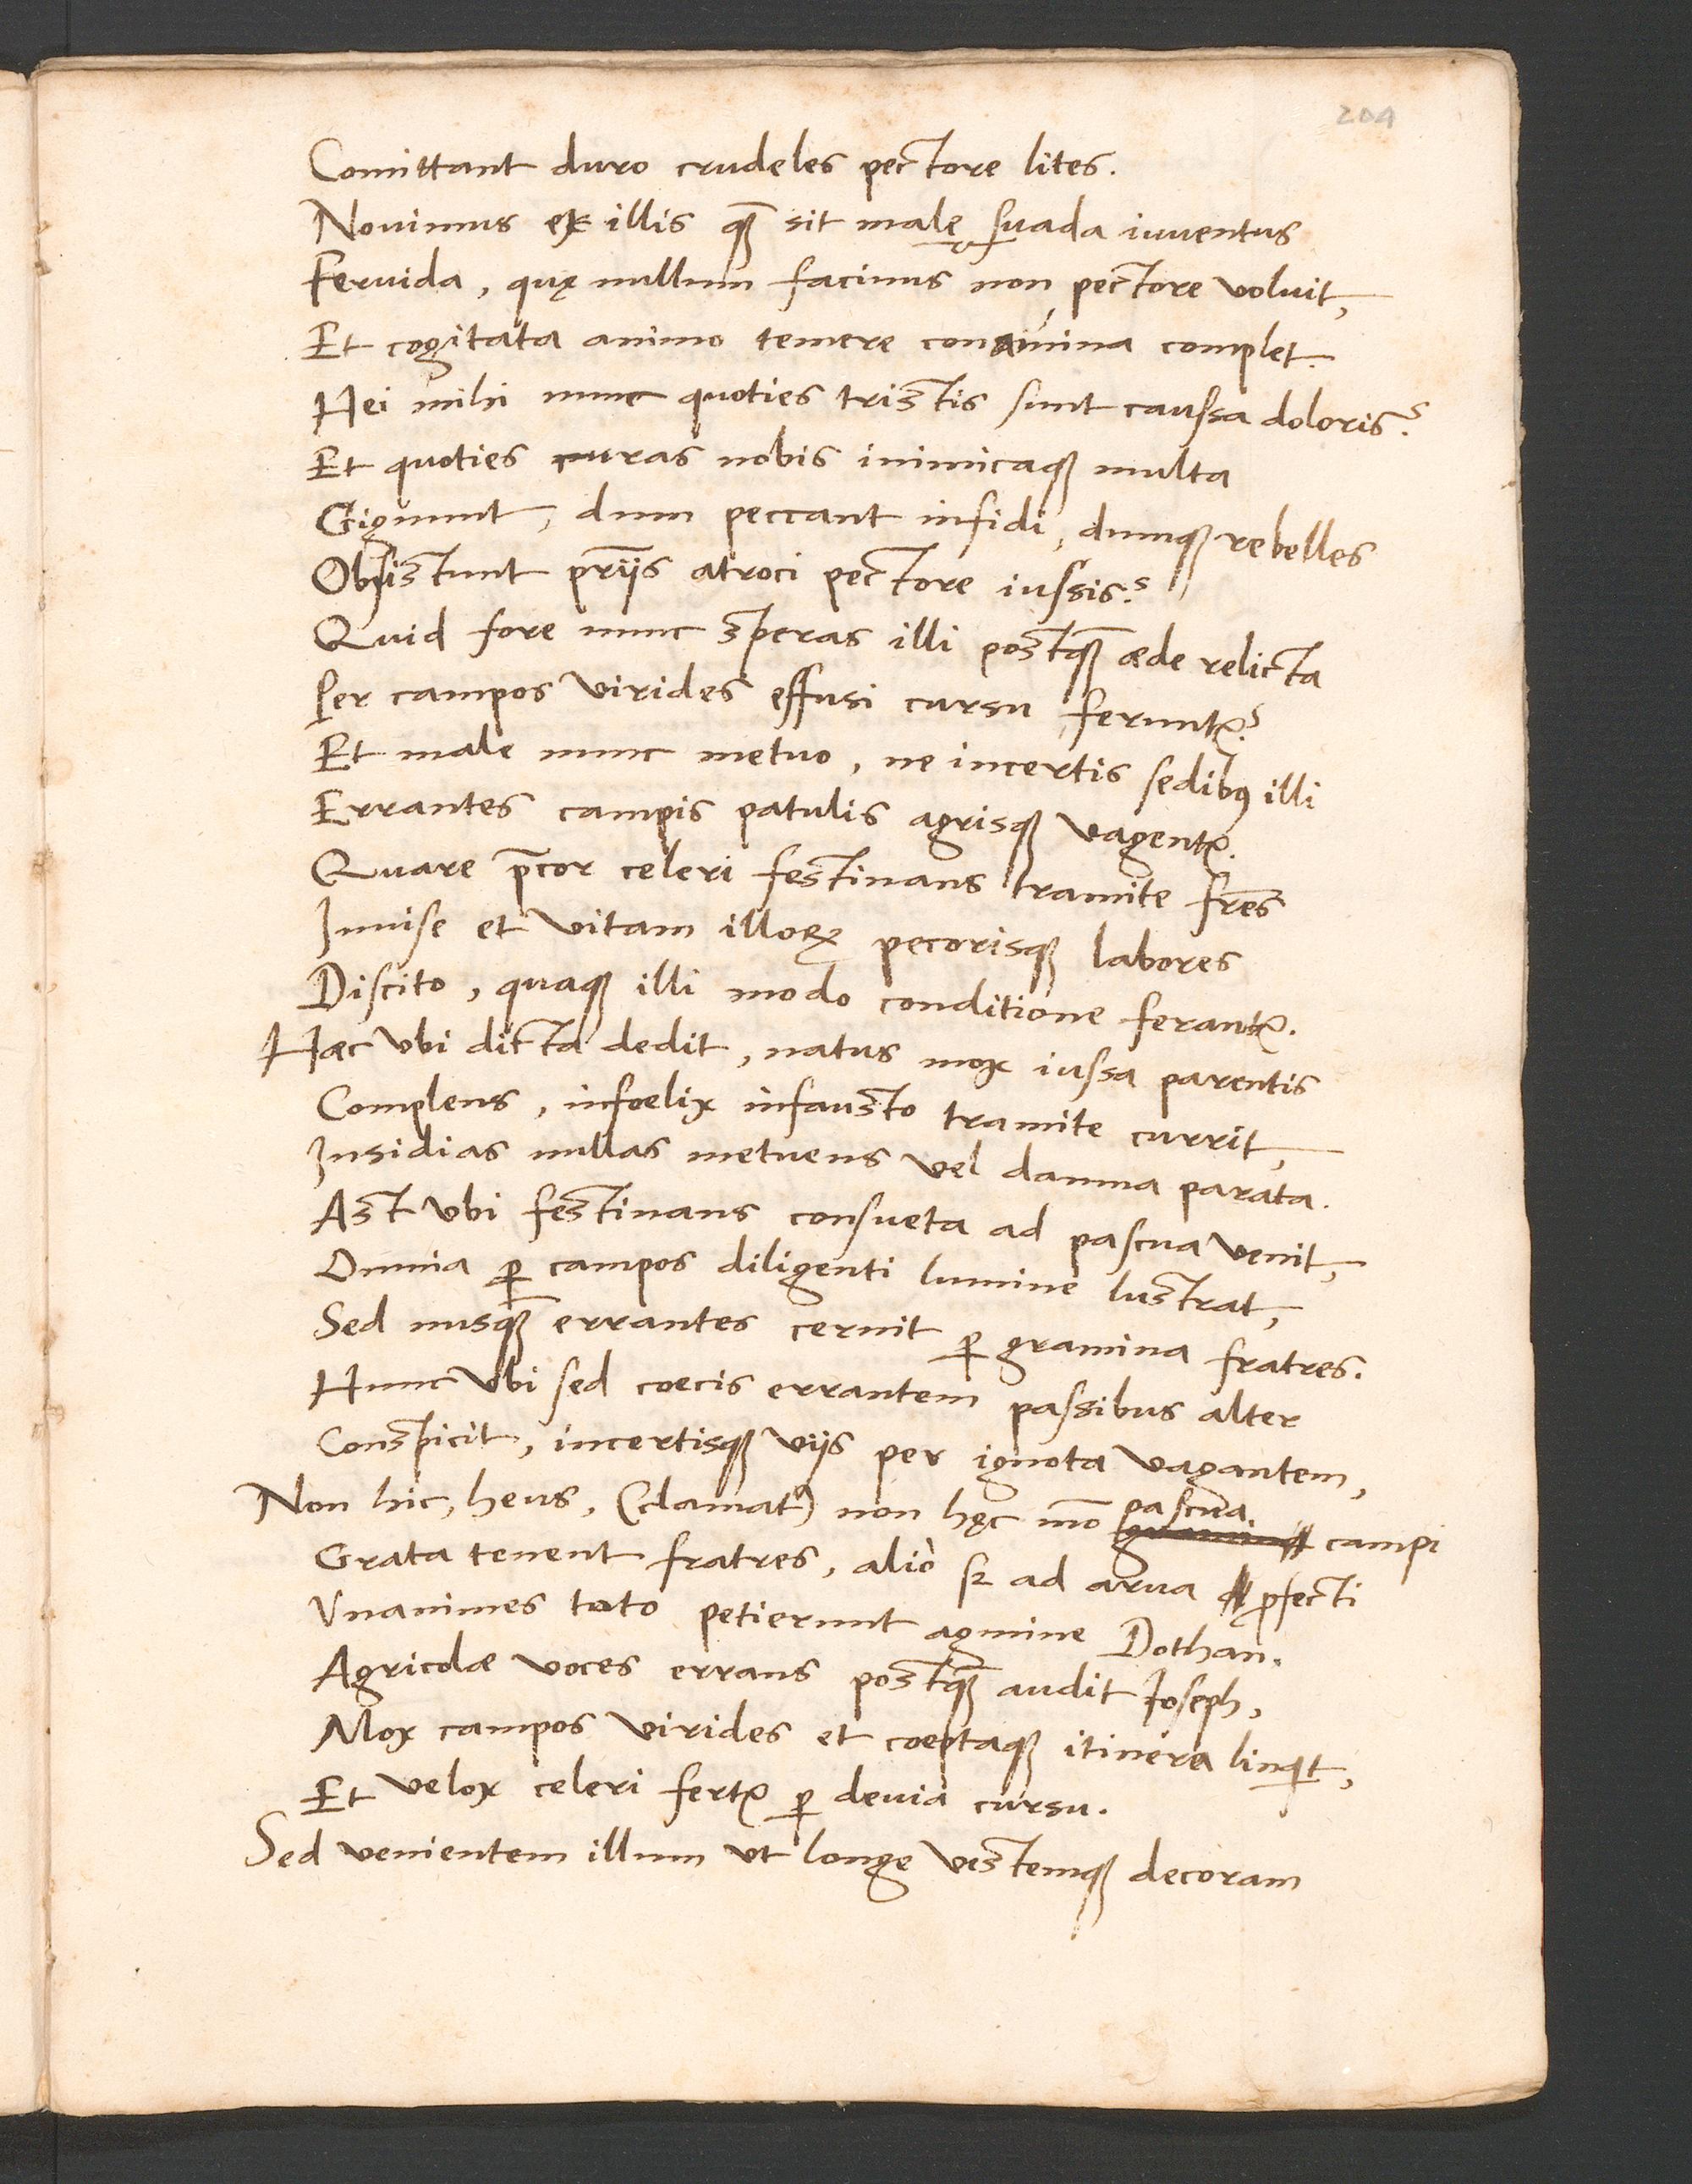 204
Comittant duro crudeles pectore lites.
Nouimus ex illis quā sit malę suada iuuentus
Feruida, quę nullum facinus non pectore voluit,
Et cogitata animo temere conamina complet.
Hei mihi nunc quoties tristis sunt caussa doloris?
Et quoties curas nobis inimicaqꝫ multa
Gignunt, dum peccant infidi, dumqꝫ rebelles
Obsistunt pr̄ijs atroci pectore iussis?
Quid fore nunc speras illi postquā æde relicta
Per campos virides effusi cursu feruntᷣ?
Et male nunc metuo, ne incertis sedibꝰ illi
Errantes campis patulis agrisqꝫ vagentᷣ.
Quare p̄cor celeri festinans tramite fr̄es
Inuise et vitam illoꝝ pecorisqꝫ labores
Discito, quaqꝫ illi modo conditione ferantᷣ.
Hæc vbi dicta dedit, natus mox iussa parentis
Complens, infœlix infausto tramite currit,
Insidias nullas metuens vel damna parata.
Ast vbi festinans consueta ad pascua venit,
Omnia ꝑ campos diligenti lumine lustrat,
Sed nusquā errantes cernit ꝑ gramina fratres.
Hunc vbi sed cœcis errantem passibus alter
Conspicit, incertisqꝫ vijs per ignota vagantem,
Non hic, heus, (clamat) non hęc mō pascua campi
Grata tenent fratres, alio sꝫ ad arua ꝓfecti
Vnanimes toto petierunt agmine Dothan.
Agricolæ voces errans postquā audit Ioseph,
Mox campos virides et cœptaqꝫ itinera linqit,
Et velox celeri fertᷣ ꝑ deuia cursu.
Sed venientem illum vt longe vestemqꝫ decoram